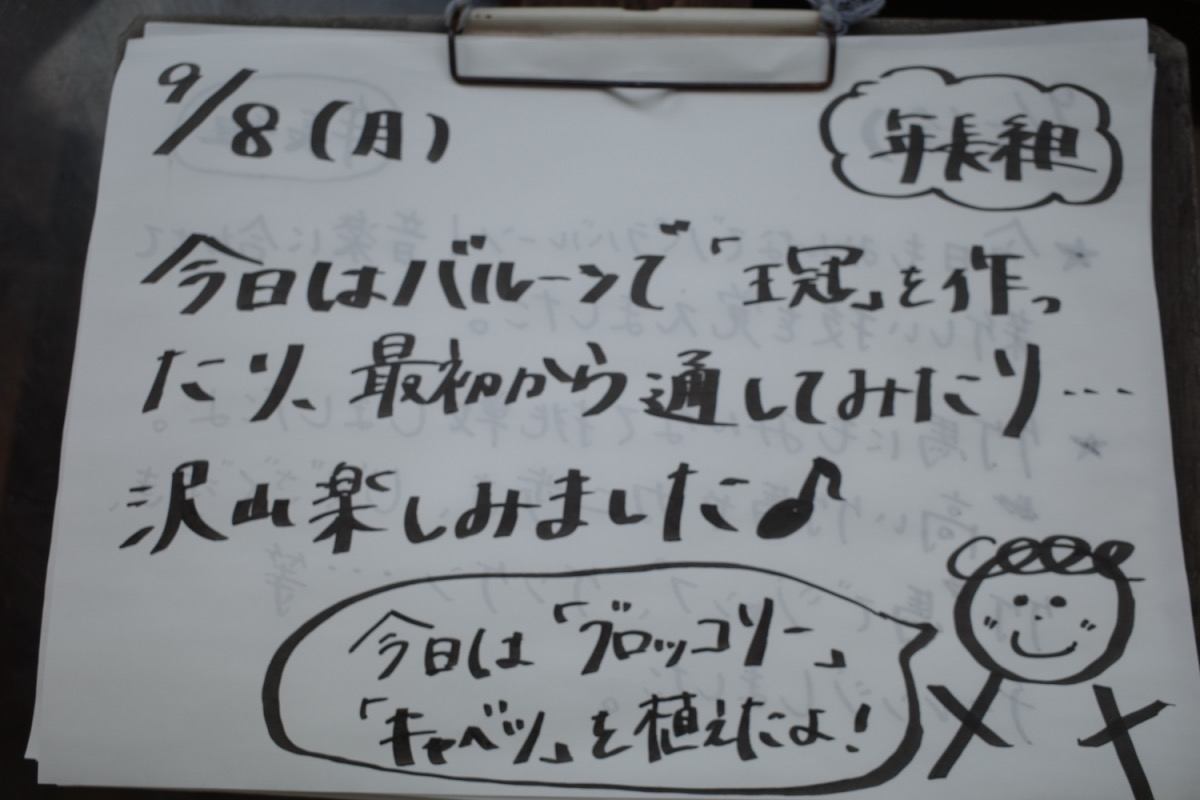 9/8(月)
年長組
今日はバルーンで「王冠」を作っ
たり、最初から通してみたり…
沢山楽しみました♪
今日は「ブロッコリー」
「キャベツ」を植えたよ!